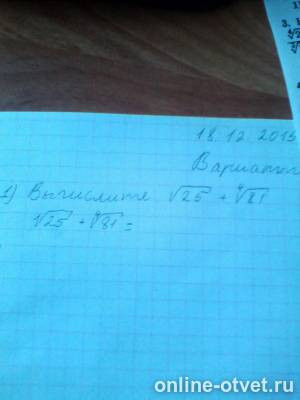 3.
18.12.2015
Вариант
1) Вычислите √25 + ⁴√81
√25 + ⁴√81 =
online-otvet.ru